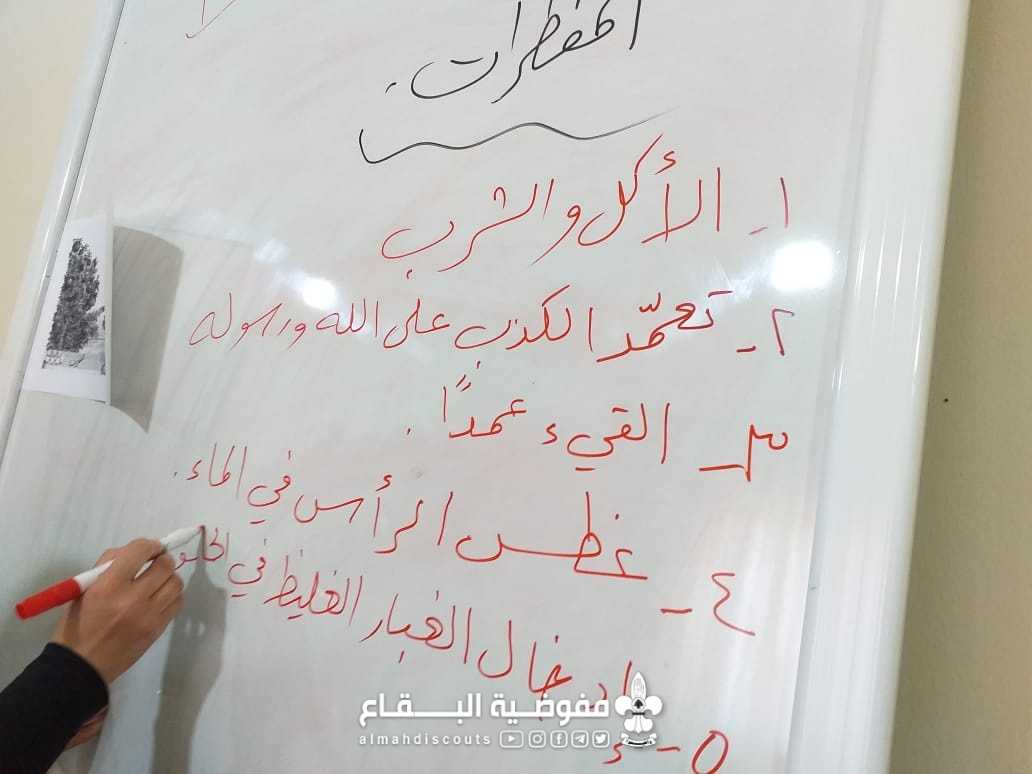 المفطرات.
١- الأكل والشرب
٢- تعمّد الكذب على الله ورسوله
٣- القيء عمداً.
٤- غطس الرأس في الماء.
٥- إدخال الغبار الغليظ في الحلق
مفوضية البقاع
almahdiscouts